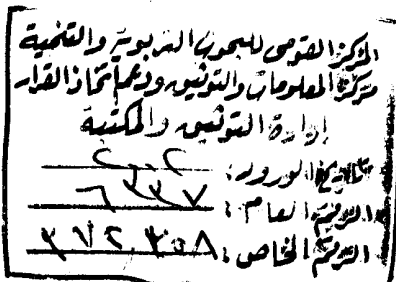 المركز القومى للبحوث التربوية والتنمية
مركز المعلومات والتوثيق ودعم اتخاذ القرار
إدارة التوثيق والمكتبة
تاريخ الورود: ٢٠٠٢
الرقم العام: ٦٣٣٧
الرقم الخاص: